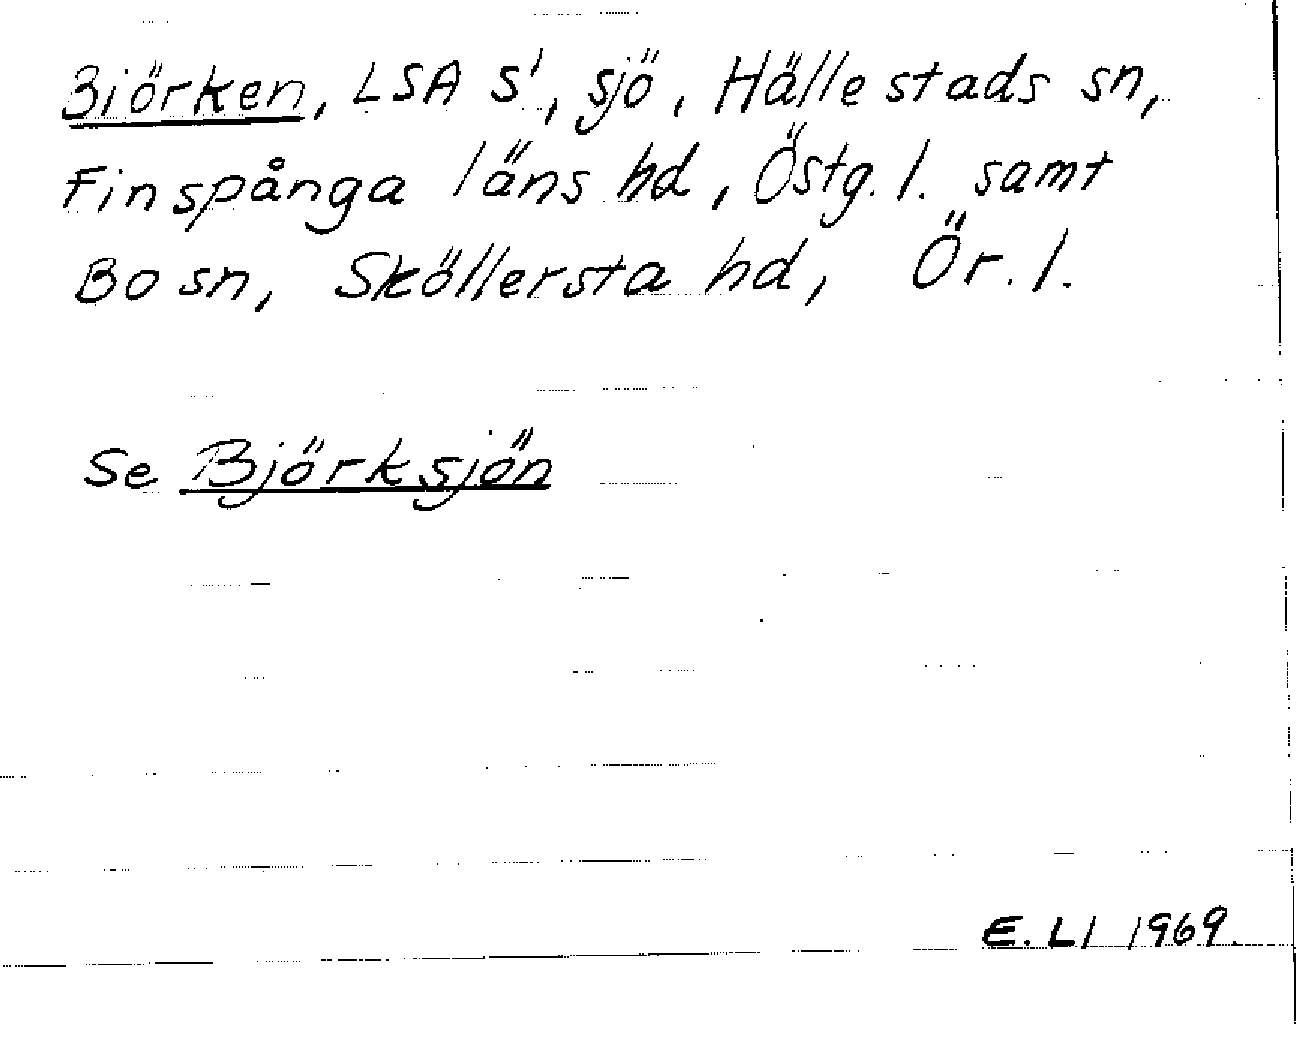 Biörken, LSA S', sjö, Hällestads sn,
Finspånga läns hd, Östg. l. samt
Bo sn, Sköllersta hd, Ör. l.
Se Björksjön
E. Ll 1969.